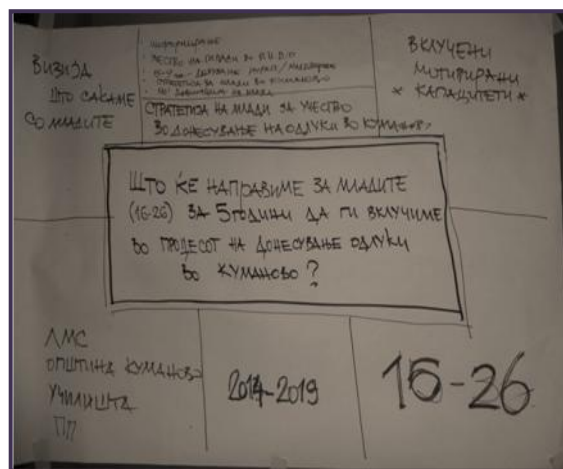 ВИЗИЈА
ШТО САКАМЕ
СО МЛАДИТЕ
информирање
УЧЕСТВО НА МЛАДИ ВО
СТРАТЕГИЈА ЗА МЛАДИ ВО КУМАНОВО
СТРАТЕГИЈА НА МЛАДИ ЗА УЧЕСТВО
ВО ДОНЕСУВАЊЕ НА ОДЛУКИ ВО КУМАНОВО
ВКЛУЧЕНИ
МОТИВИРАНИ
* КАПАЦИТЕТИ *
ШТО ЌЕ НАПРАВИМЕ ЗА МЛАДИТЕ
(16-26) ЗА 5 ГОДИНИ ДА ГИ ВКЛУЧИМЕ
ВО ПРОЦЕСОТ НА ДОНЕСУВАЊЕ ОДЛУКИ
ВО КУМАНОВО?
ЛМС
ОПШТИНА КУМАНОВО
УЧИЛИШТА
ПП
2014-2019
16-26